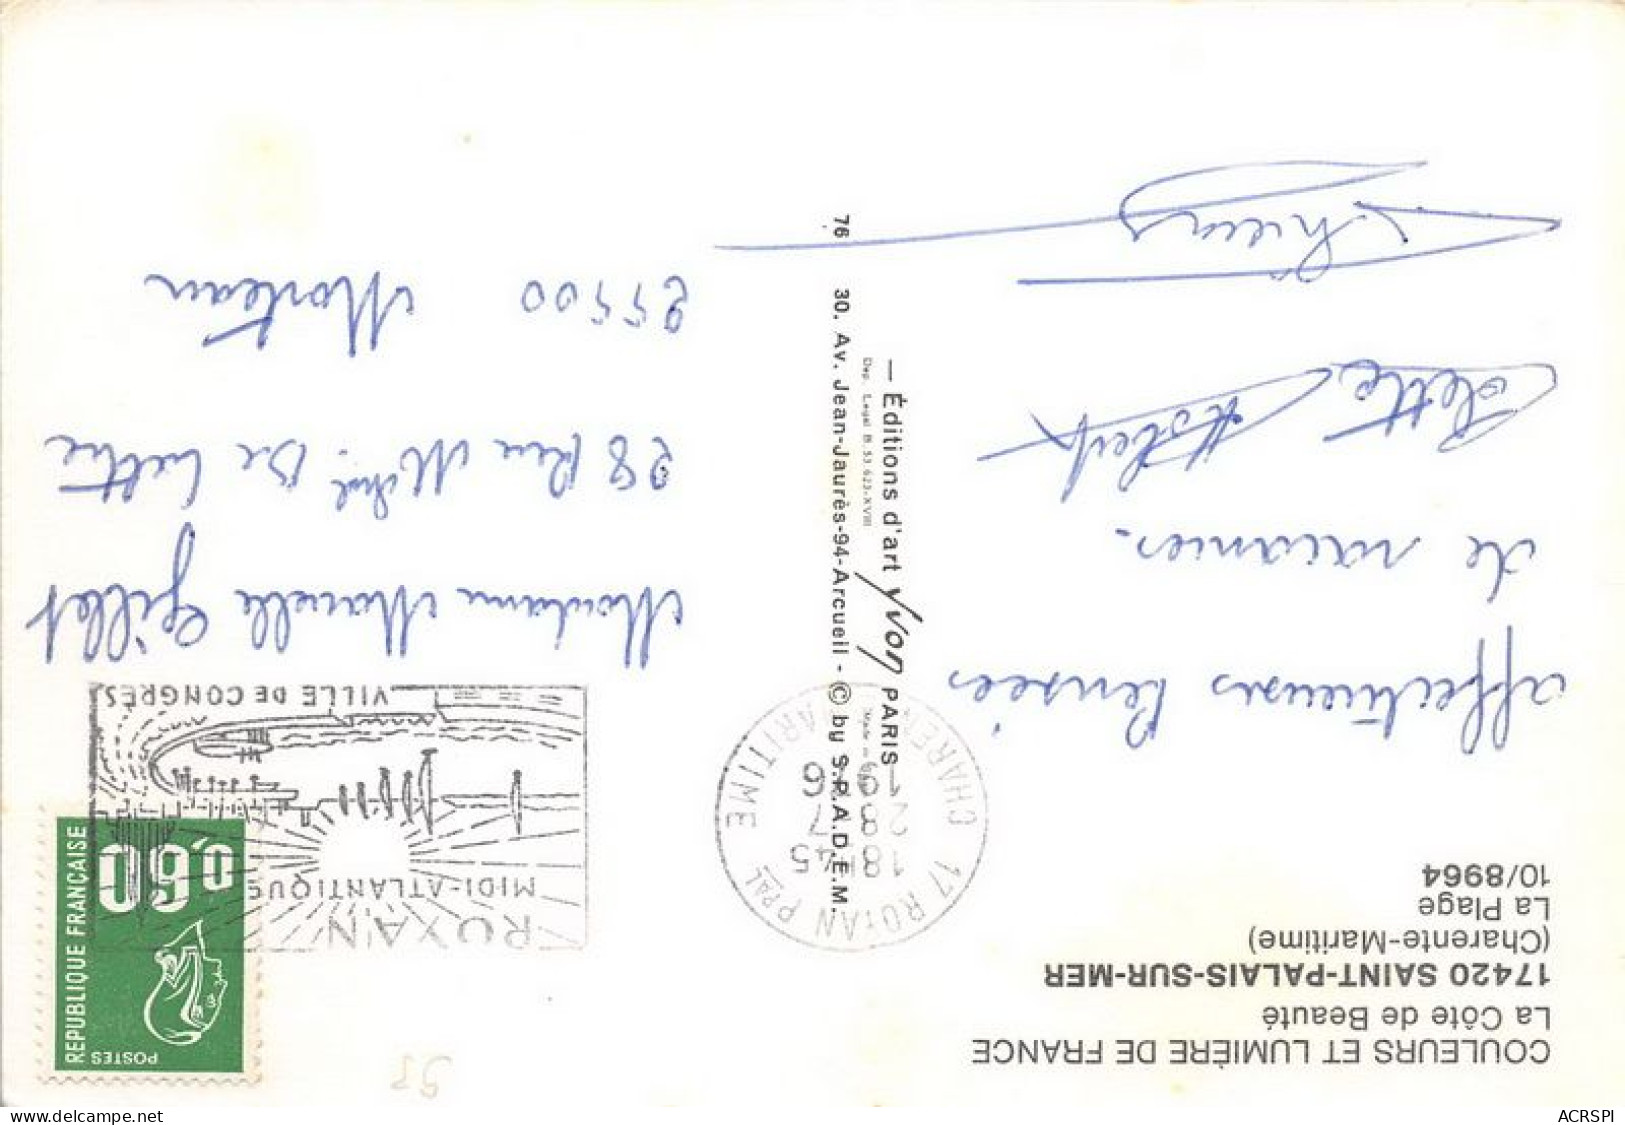 COULEURS ET LUMIÈRE DE FRANCE
La Côte de Beauté
17420 SAINT-PALAIS-SUR-MER
(Charente-Maritime)
La Plage
10/8964
Affectueuses Pensées
de vacances.
Colette Robert
— Éditions d'art Yvon PARIS —
Dep. Legal B.53.623-XVIII
76 30. Av. Jean-Jaurès-94-Arcueil - © by S.P.A.D.E.M.
17 ROYAN PPAL
CHARENTE MARITIME
18H45
28 7
1976
ROYAN
MIDI-ATLANTIQUE
VILLE DE CONGRÈS
POSTES
REPUBLIQUE FRANÇAISE
0,60
Madame Marcelle Gillet
28 Rue
25500 Morteau
55
ACRSPI